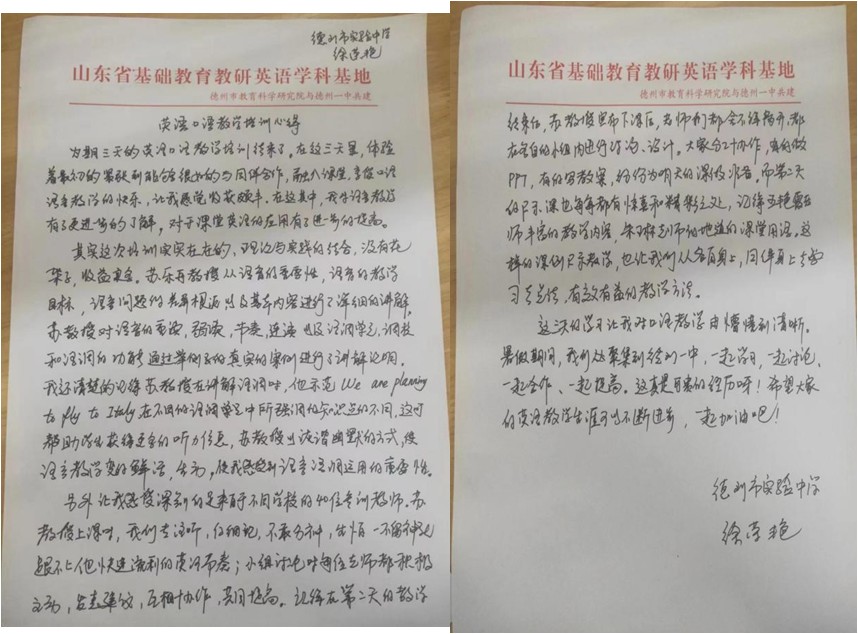 德州市实验中学
徐莲艳
山东省基础教育教研英语学科基地
德州市教育科学研究院与德州一中共建
英语口语教学培训心得
为期三天的英语口语教学培训结束了。在这三天里,体验
着最初的紧张到能合很好的与同伴合作,而融入课堂,享受口语
语音教学的快乐,让我感觉收获颇丰。在这其中,我对语音教学
有了更进一步的了解,对于课堂英语的应用有了进一步的提高。
其实这次培训实实在在的,理论与实践的结合,没有花
架子,收益更多。苏乐舟教授从语音的重要性,语音的教学
目标,语音问题的差异根源以及基本内容进行了详细的讲解。
苏教授对语音的重读,弱读,节奏,连读以及语调学意,调教
和语调的功能通过举例子的真实的案例进行了讲解说明。
我还清楚的记得苏教授在讲解语调时,他示范We are planning
to fly to Italy在不同的语调意义中所强调的知识点的不同,这可
帮助学生获得更多的听力信息,苏教授以诙谐幽默的方式,使
语音教学变的鲜活,生动,使我感受到语音语调运用的重要性。
另外让我感受深刻的是来自于不同学校的40位专训教师。苏
教授上课时,我们专注听,仔细记,不敢分神,生怕一不留神就
跟不上他快速流利的英语节奏;小组讨论时每位老师都积极
主动,出言建议,互相协作,共同提高。记得在第二天的教学
结束后,苏教授宣布下课后,老师们都舍不得离开,都
在各自的小组内进行讨论、设计。大家分工协作,有的做
PPT,有的写教案,纷纷为明天的课做准备。而第二天
的展示课也每每都有惊喜和精彩之处,记得王艳霞老
师丰富的教学内容,朱琳老师的地道的课堂用语。这
样的课例展示教学,也让我们从各自身上,同伴身上去学
习去总结,有效有益的教学方法。
这次的学习让我对口语教学由懵懂到清晰。
暑假期间,我们能聚集到德州一中,一起学习,一起讨论,
一起合作、一起提高。这真是可喜的经历呀!希望大家
的英语教学生涯可以不断进步,一起加油吧!
德州市实验中学
徐莲艳
山东省基础教育教研英语学科基地
德州市教育科学研究院与德州一中共建